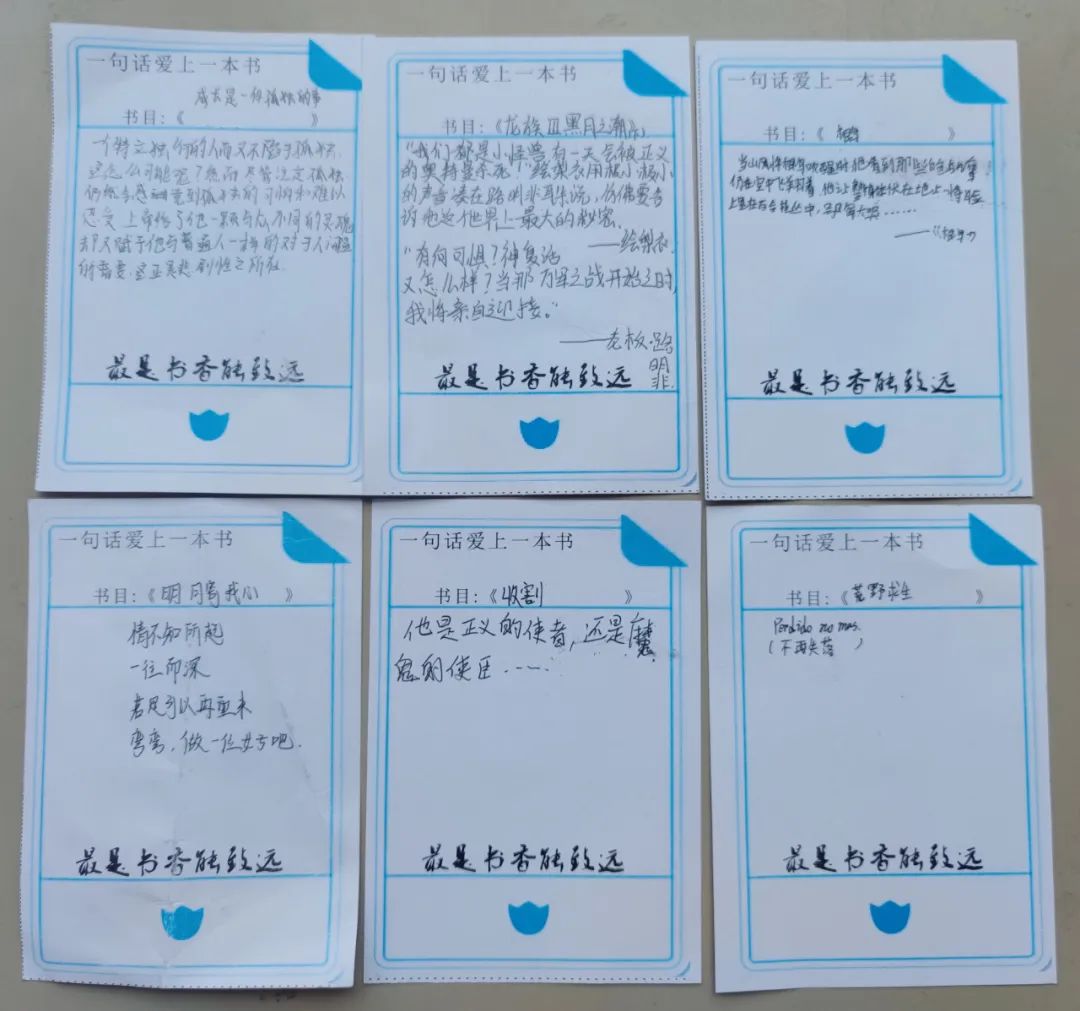 一句话爱上一本书
成长是一件孤独的事
书目:《 》
一个特立独行的人而又不陷于孤独,
这怎么可能呢?然而尽管注定孤独
仍然会感觉到孤独的可怕和难以
忍受上帝给了他一颗与众不同的灵魂
却又赋于他与普通人一样的对于人间温
的需要,这正是悲剧性之所在.
最是书香能致远
一句话爱上一本书
书目:《龙族Ⅲ黑月之潮》
“我们都是小怪兽有一天会被正义
的奥特曼杀死”绘梨衣用极小极小
的声音凑在路明非耳朵说,仿佛要告
诉他这个世界上最大的秘密.
——绘梨衣.
“有何可惧?神复活
又怎么样?当那万军之战开始之时,
我将亲自迎接。”
——老板·路明非.
最是书香能致远
一句话爱上一本书
书目:《 》
仍在空中飞
最是书香能致远
一句话爱上一本书
书目:《明月寄我心 》
情不知所起
一往而深
若是可以再重来
弯弯,做一位女方吧.
最是书香能致远
一句话爱上一本书
书目:《收割 》
他是正义的使者,还是魔
鬼的使臣……
最是书香能致远
一句话爱上一本书
书目:《荒野求生 》
Perdido no mas.
(不再失落)
最是书香能致远